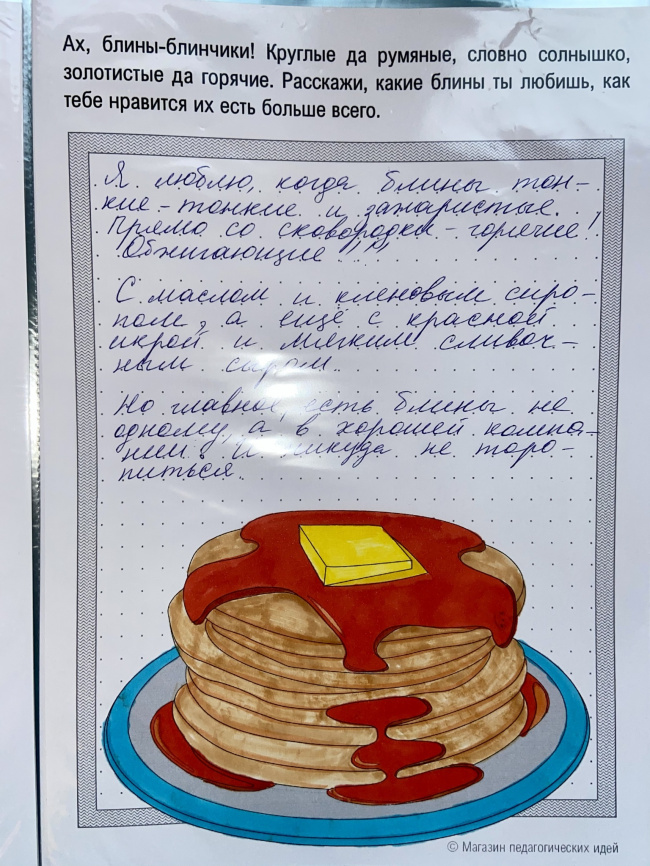 Ах, блины-блинчики! Круглые да румяные, словно солнышко,
золотистые да горячие. Расскажи, какие блины ты любишь, как
тебе нравится их есть больше всего.
Я люблю, когда блины тон-
кие-тонкие и зажаристые.
Прямо со сковородки - горячие!
Обжигающие!
С маслом и кленовым сиро-
пом, а ещё с красной
икрой и мягким сливоч-
ным сыром.
Но главное, есть блины не
одному, а в хорошей компа-
нии. И никуда не торо-
питься.
© Магазин педагогических идей